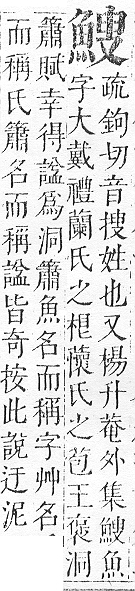 䱸
疏鉤切音搜姓也又楊升菴外集䱸魚
字大戴禮蘭氏之根懷氏之苞王褒洞
簫賦幸得諡爲洞簫魚名而稱字艸名
而稱氏簫名而稱諡皆奇按此說迂泥